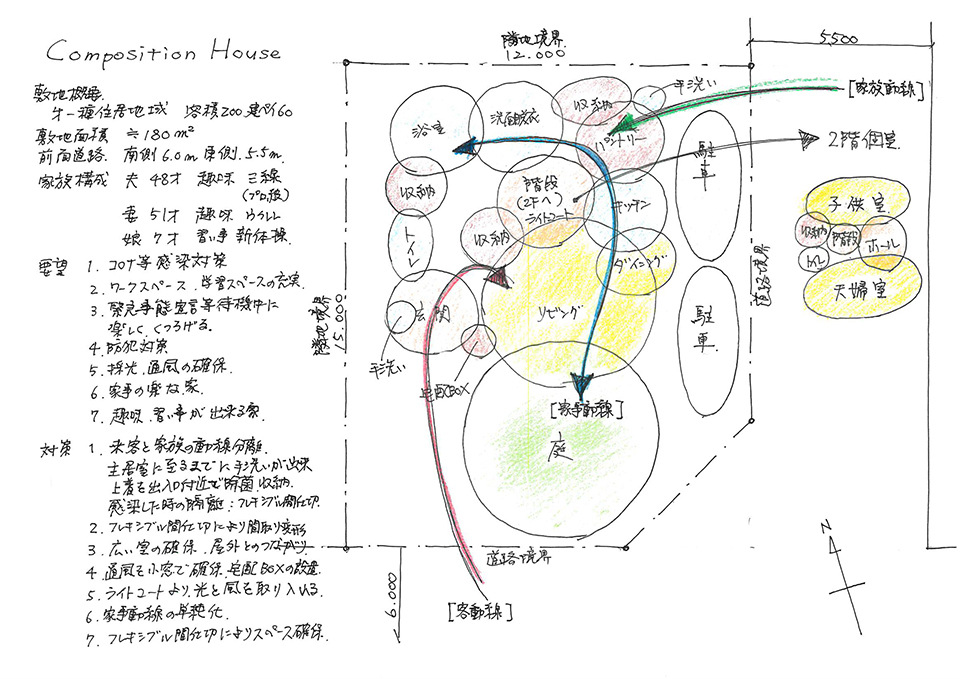 Composition House
敷地概要
第一種住居地域 容積200 建ペイ60
敷地面積 ≒180㎡
前面道路 南側6.0m 東側5.5m
家族構成 夫 48才 趣味 三線
(プロ級)
妻 51才 趣味 ウクレレ
娘 7才 習い事 新体操
要望 1. コロナ等感染対策
2. ワークスペース、学習スペースの充実
3. 緊急事態宣言等待機中に
楽しく、くつろげる。
4. 防犯対策
5. 採光、通風の確保.
6. 家事の楽な家.
7. 趣味、習い事が出来る家
対策 1. 来客と家族の動線分離.
主居室に至るまでに手洗いが出来
上着を出入口付近で除菌、収納.
感染した時の隔離:フレキシブル間仕切
2. フレキシブル間仕切により間取り変形
3. 広い室の確保、屋外とのつながり
4. 通風を小窓で確保、宅配BOXの設置
5. ライトコートより、光と風を取り入れる
6. 家事動線の単純化.
7. フレキシブル間仕切によりスペース確保.
隣地境界
12.000
5,500
浴室
洗面脱衣
収納
手洗い
[家族動線]
パントリー
2階個室
収納
階段
(2Fへ)
ライトコート
キッチン
駐車
トイレ
収納
ダイニング
隣地境界
15.000
玄関
リビング
駐車
道路境界
手洗い
宅配BOX
[家事動線]
庭
子供室
収納
階段
ホール
トイレ
夫婦室
道路境界
6.000
[客動線]
N